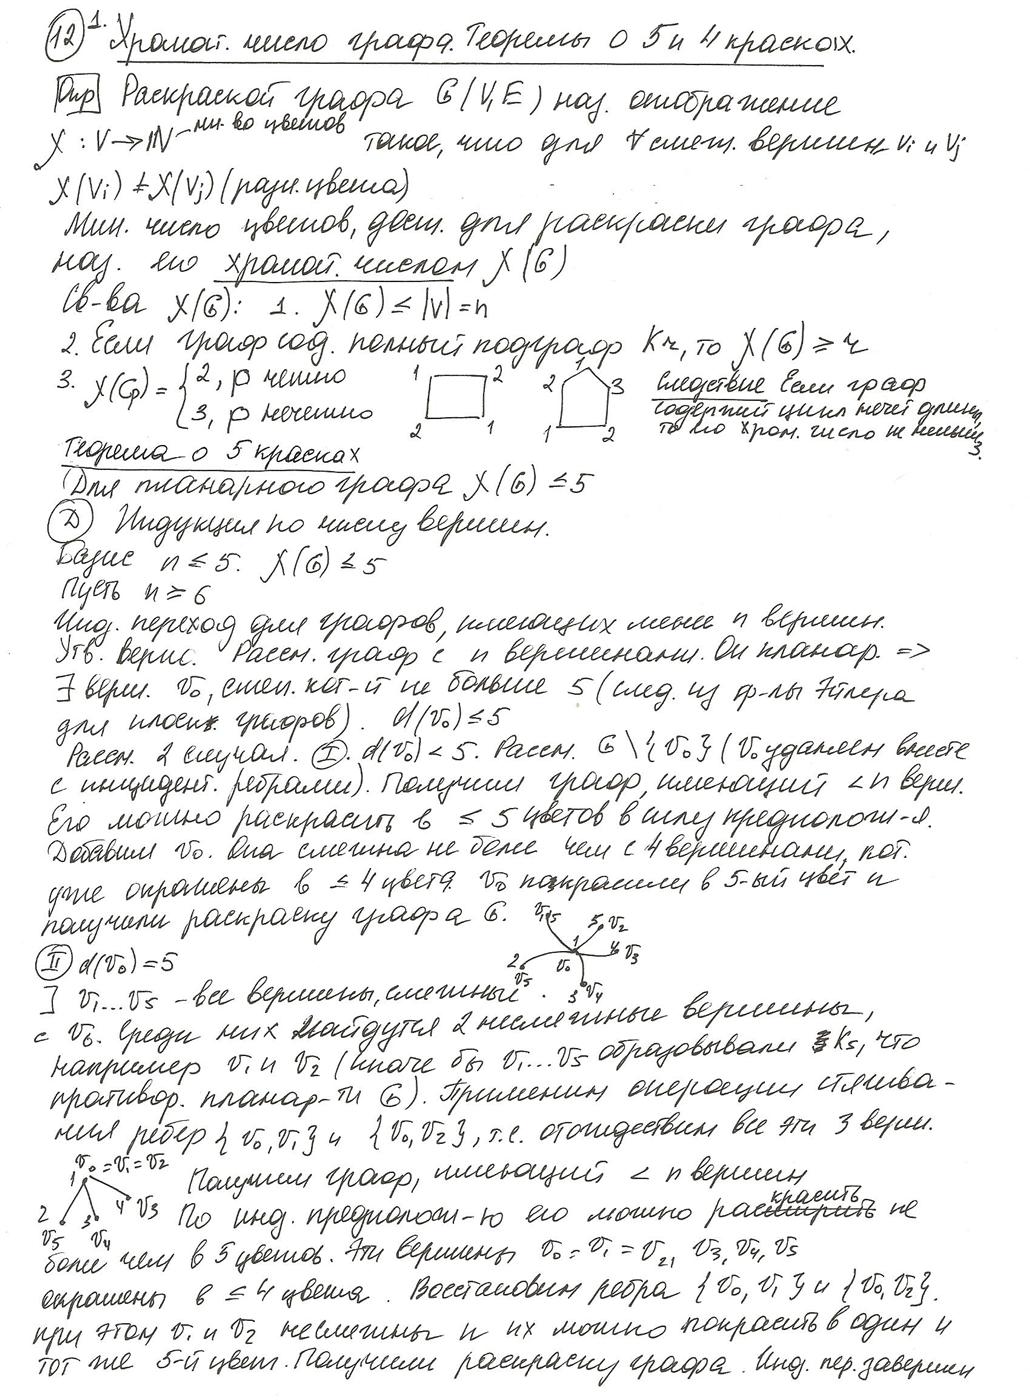 12 1. Хромат. число графа. Теоремы о 5 и 4 красках.
Опр Раскраской графа G(V,E) наз. отображение
χ : V → ℕ мн-во цветов такое, что для ∀ смеж. вершин vi и vj
χ(vi) ≠ χ(vj) (разн. цвета)
Мин. число цветов, дост. для раскраски графа,
наз. его хромат. числом χ(G)
Св-ва χ(G): 1. χ(G) ≤ |V| = n
2. Если граф сод. полный подграф Kr, то χ(G) ≥ r
3. χ(Cp) = { 2, p четно
3, p нечетно
1 2 2 1
1 2 3 1 2
Следствие Если граф
содержит цикл нечет длины,
то его хром. число не меньше
3.
Теорема о 5 красках
Для планарного графа χ(G) ≤ 5
Д Индукция по числу вершин.
Базис n ≤ 5. χ(G) ≤ 5
Пусть n ≥ 6
Инд. переход для графов, имеющих менее n вершин.
Утв. верно. Рассм. граф с n вершинами. Он планар. =>
∃ верш. v0, степ. кот-й не больше 5 (след. из ф-лы Эйлера
для плоск. графов). d(v0) ≤ 5
Рассм. 2 случая. I. d(v0) < 5. Рассм. G \ {v0} (v0 удаляем вместе
с инцидент. ребрами). Получим граф, имеющий < n верш.
Его можно раскрасить в ≤ 5 цветов в силу предполож-я.
Добавим v0. Она смежна не более чем с 4 вершинами, кот.
уже окрашены в ≤ 4 цвета. v0 покрасили в 5-ый цвет и
получили раскраску графа G.
v1 5 5 v2
1 4 v3
2 v5 v0 3 v4
II d(v0) = 5
∃ v1...v5 - все вершины, смежные
с v0. Среди них найдутся 2 несмежные вершины,
например v1 и v2 (иначе бы v1...v5 образовывали K5, что
противор. планар-ти G). Применим операции стягива-
ния ребер {v0,v1} и {v0,v2}, т.е. отождествим все эти 3 верш.
v0 = v1 = v2
1 2 v5 3 v4 4 v3
Получим граф, имеющий < n вершин
По инд. предполож-ю его можно раскрасить не
более чем в 5 цветов. Эти вершины v0 = v1 = v2, v3, v4, v5
окрашены в ≤ 4 цвета. Восстановим ребра {v0,v1} и {v0,v2}.
при этом v1 и v2 несмежны и их можно покрасить в один и
тот же 5-й цвет. Получили раскраску графа. Инд. пер. завершен